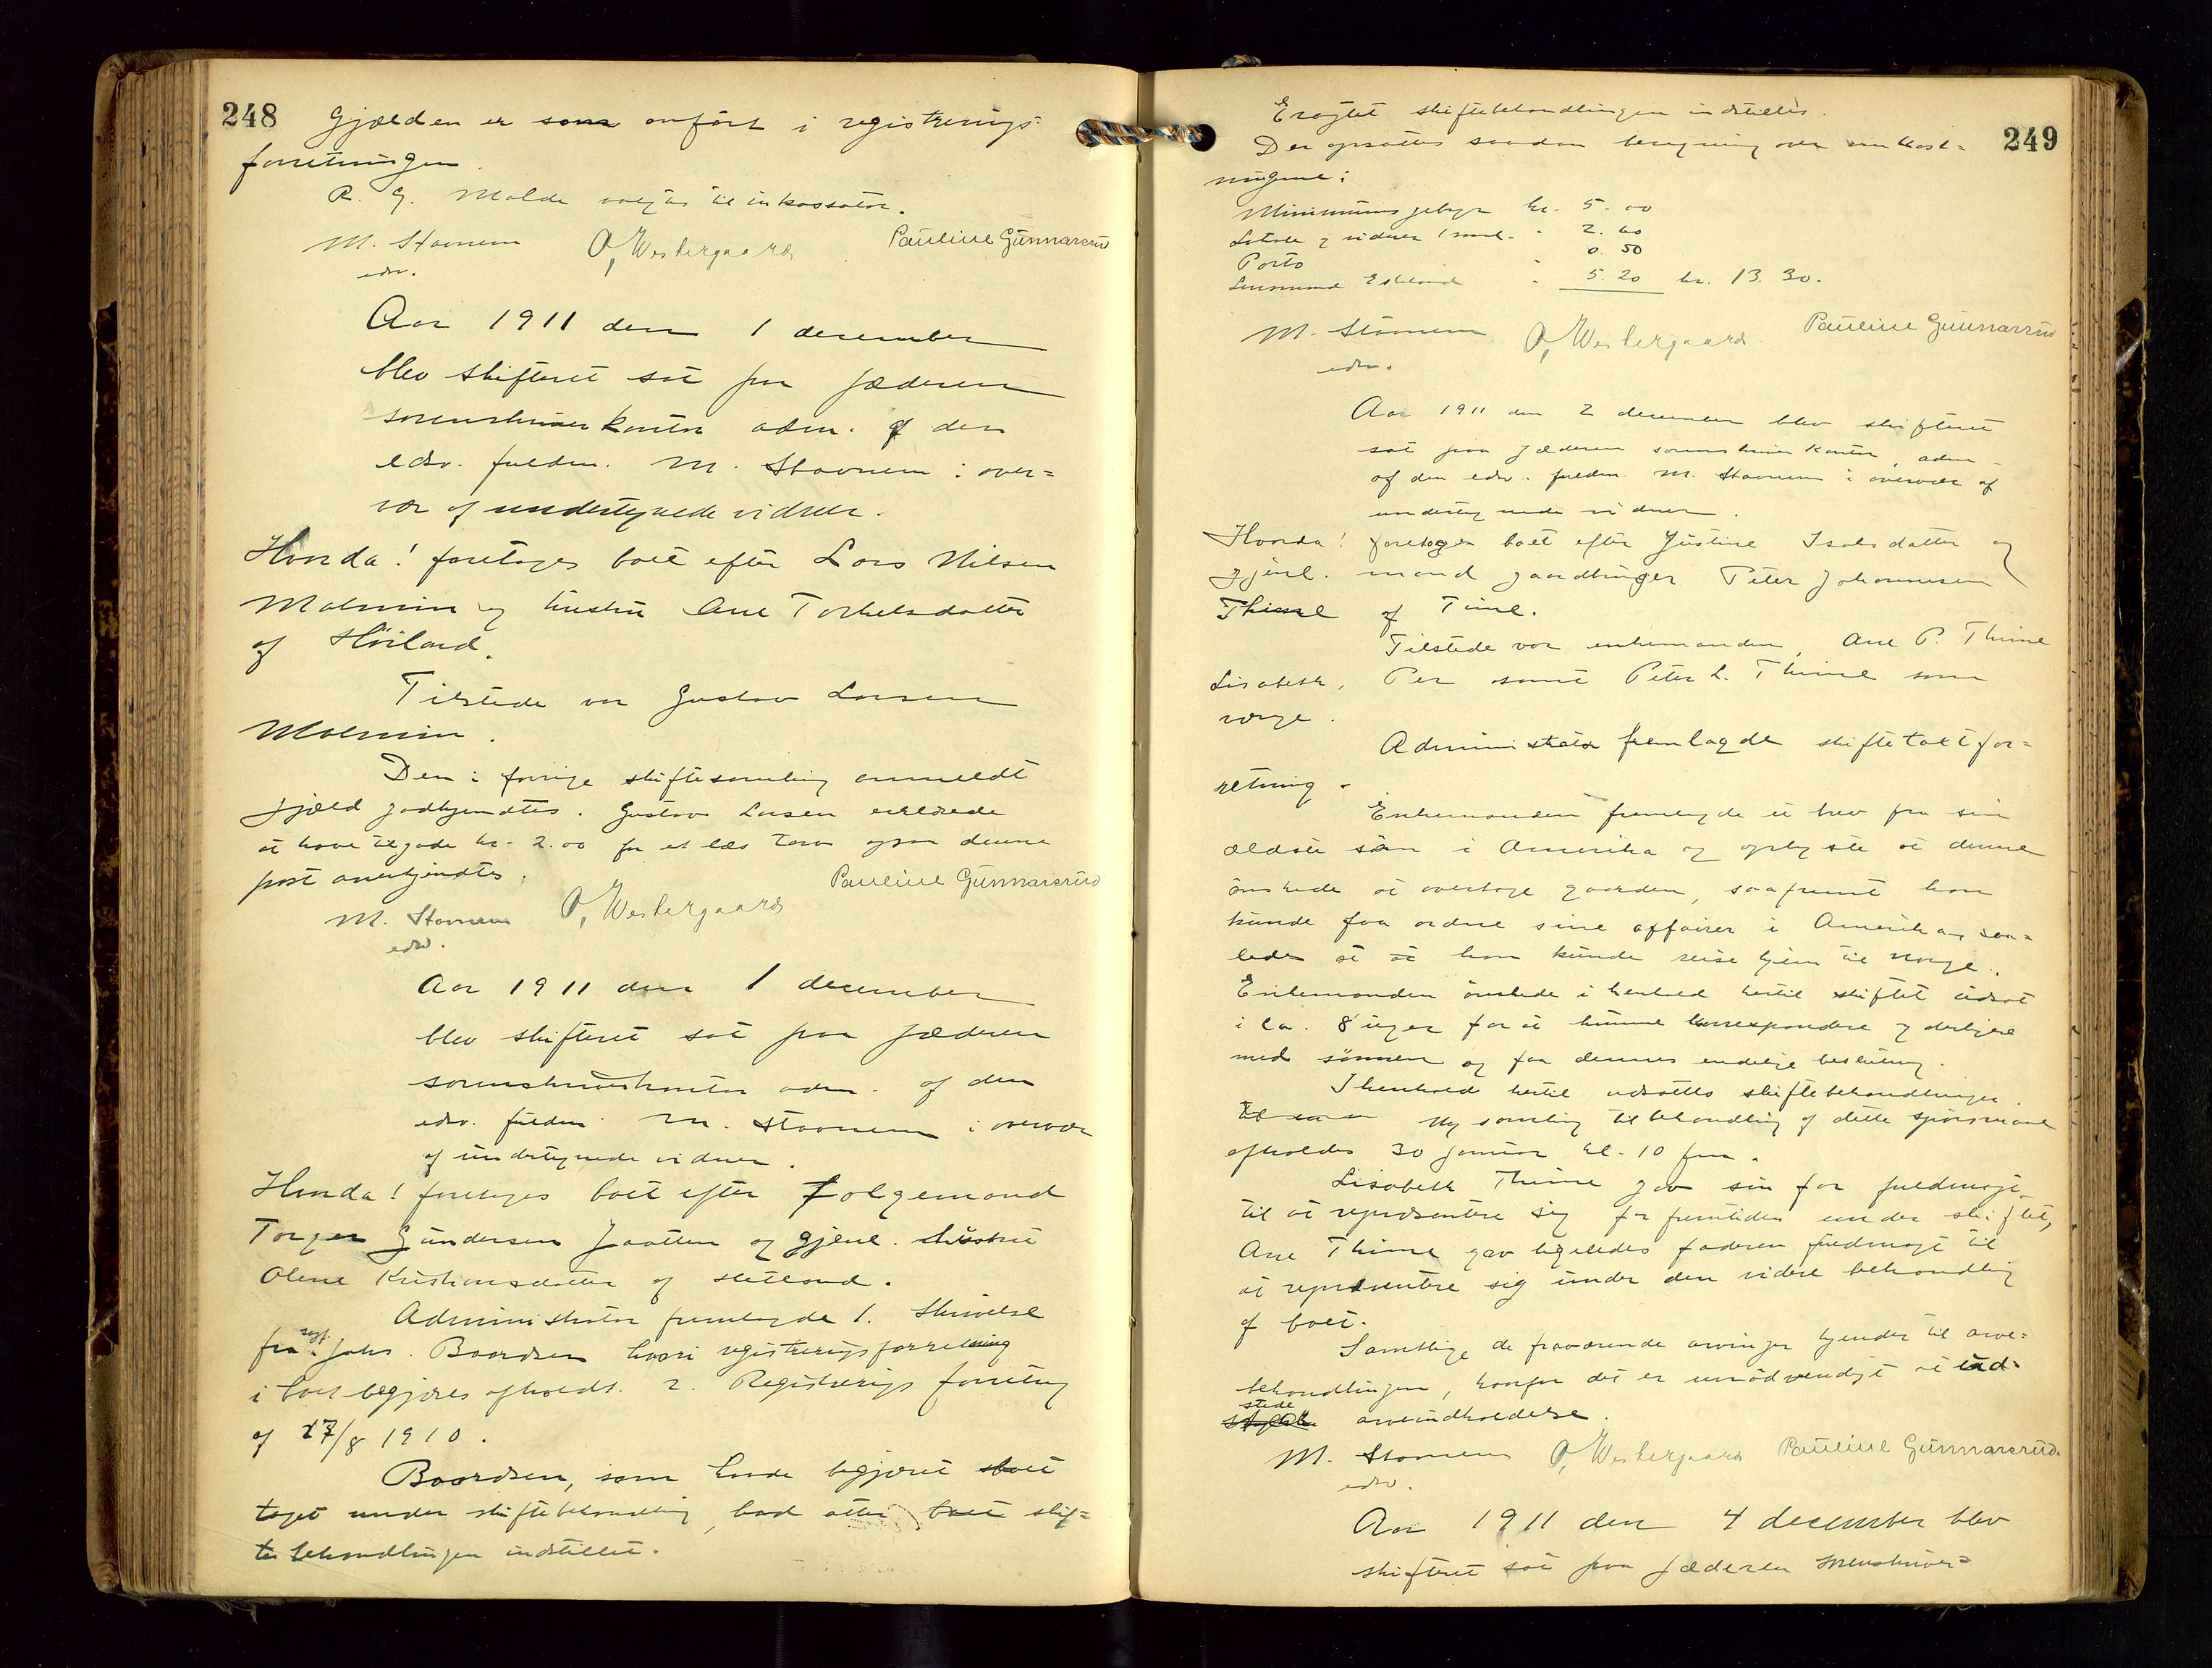 248
Gjælden er som anført i registrerings-
forretningen.
R. G. Molde valgtes til inkassator.
M. Stavnem O. Westergaard Pauline Gunnarsrud
edsv.
Aar 1911 den 1 december
blev skifteret sat paa Jæderen
sorenskriverkontor adm. af den
edsv. fuldm. M. Stavnem i over=
vær af undertegnede vidner.
Hvorda! foretages boet efter Lars Nilsen
Malmin og hustru Ane Torkelsdatter
af Høiland.
Tilstede var Gustav Larsen
Malmin.
Den i forrige skiftesamling anmeldt
gjæld godkjendtes. Gustav Larsen erklærede
at have tilgode kr. 2.00 for et læs torv ogsaa denne
post anerkjendtes.
M. Stavnem O. Westergaard Pauline Gunnarsrud
edsv.
Aar 1911 den 1 december
blev skifteret sat paa Jæderen
sorenskriverkontor adm. af den
edsv. fuldm. M. Stavnem i overvær
af undertegnede vidner.
Hvorda! foretages boet efter Folgemand
Torger Gundersen Jaatten og gjenl. hustru
Olene Kristiansdatter af Hetland.
Administrator fremlagde 1. Skrivelse
fra sagf. Johs. Baardsen hvori registreringsforretning
i boet begjæres afholdt. 2. Registrerings forretning
af 27/8 1910.
Baardsen, som havde begjæret boet
taget under skiftebehandling, bad atter boet skif=
tebehandlingen indstillet.
249
Eragtet skiftebehandlingen indstilles.
Der opsattes saadan beregning over omkost=
ningene:
Minimumsgebyr kr. 5.00
Lokale og vidner 1 saml. " 2.60
Porto " 0.50
Lensmand Eskeland " 5.20 kr. 13.30.
M. Stavnem O. Westergaard Pauline Gunnarsrud
edsv.
Aar 1911 den 2 december blev skifteret
sat paa Jæderen sorenskriverkontor, adm
af den edsv. fuldm. M. Stavnem i overvær af
undertegnede vidner.
Hvorda! foretoges boet efter Justine Isaksdatter og
gjenl. mand gaardbruger Peter Johannesen
Thime af Time.
Tilstede var enkemanden, Ane P. Thime
Lisabeth, Per samt Peter L. Thime som
verge.
Administrator fremlagde skiftetaktfor=
retning.
Enkemanden fremlagde et brev fra sin
ældste søn i Amerika og oplyste at denne
ønskede at overtage gaarden, saafremt han
kunde faa ordne sine affairer i Amerika saa=
ledes at at han kunde reise hjem til Norge.
Enkemanden ønskede i henhold hertil skiftet udsat
i ca. 8 uger for at kunne korrespondere yderligere
med sønnen og faa dennes endelige beslutning.
I henhold hertil udsattes skiftebehandlingen.
Ny samling til behandling af dette spørsmaal
afholdes 30 januar kl. 10 fm.
Lisabeth Thime gav sin far fuldmagt
til at repræsentere sig for fremtiden under skiftet,
Ane Thime gav ligeledes faderen fuldmagt til
at repræsentere sig under den videre behandling
af boet.
Samtlige de fraværende arvinger kjender til arve=
behandlingen, hvorfor det er unødvendigt at ud=
stede arveindkaldelse.
M. Stavnem O. Westergaard Pauline Gunnarsrud
edsv.
Aar 1911 den 4 december blev
skifteret sat paa Jæderen sorenskriver=